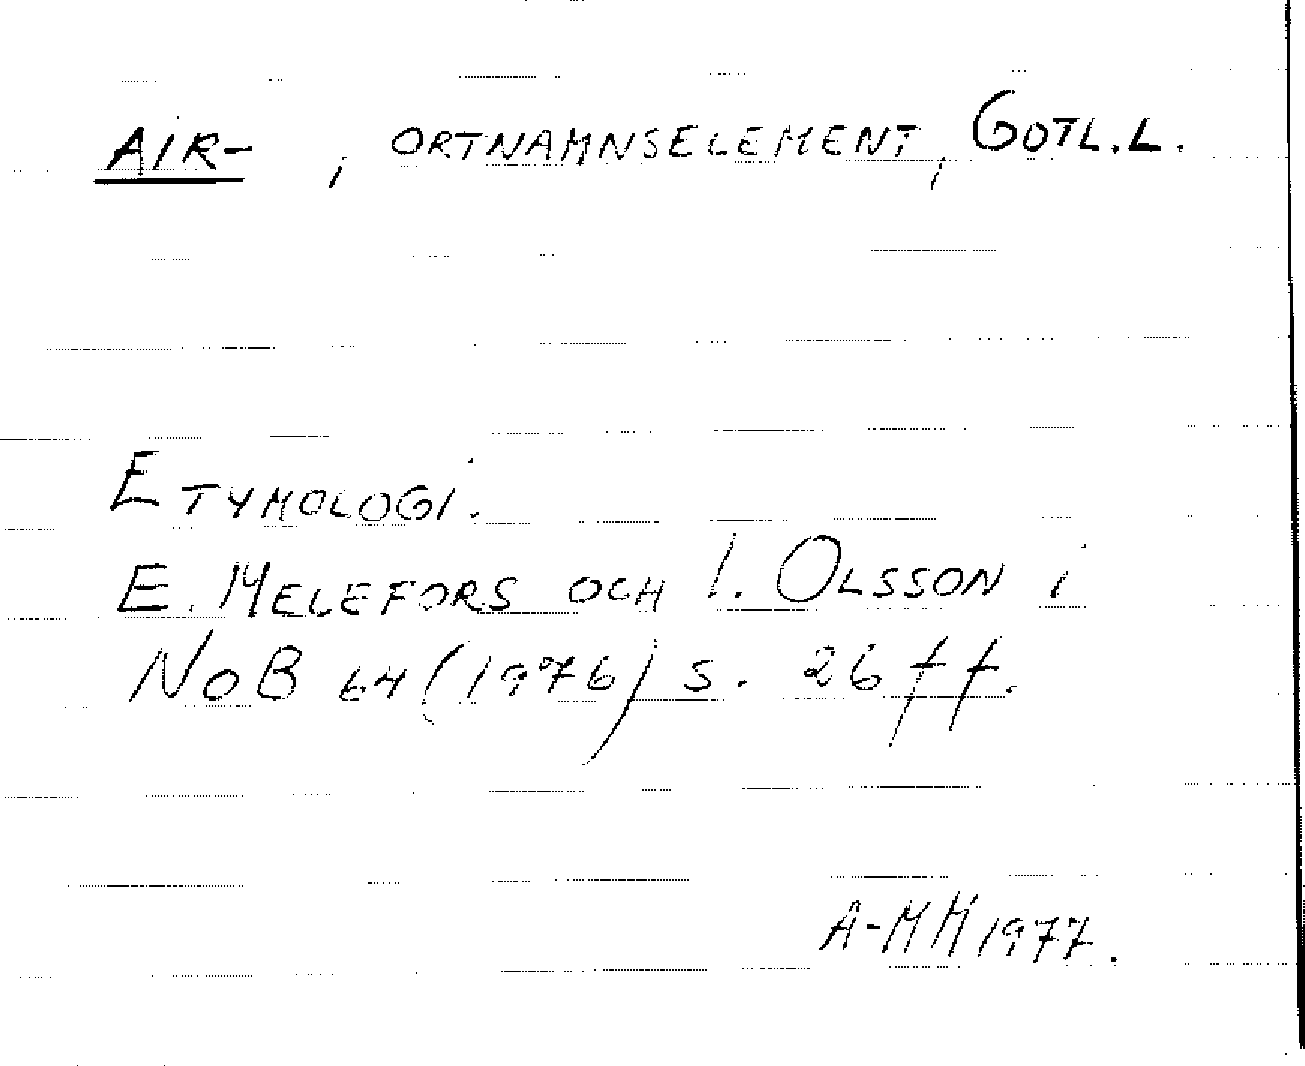 AIR-, ORTNAMNSELEMENT, GOTL.L.
ETYMOLOGI.
E. MELEFORS OCH I. OLSSON i
NoB 64 (1976) S. 26 ff.
A-MH 1977.